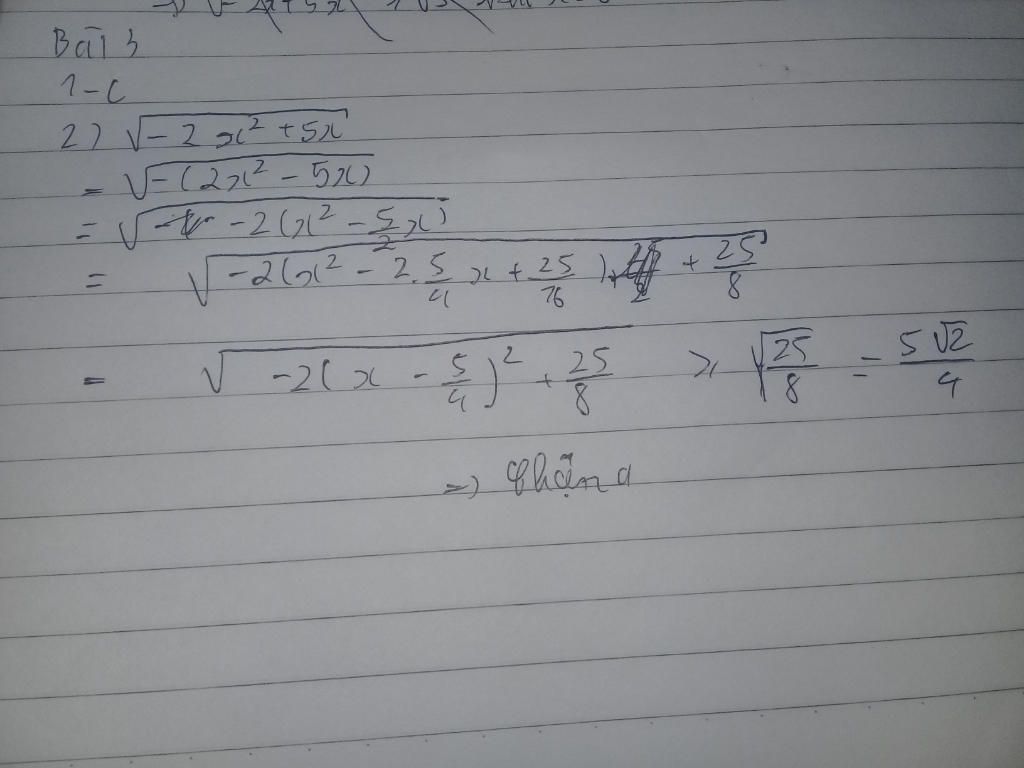 Bài 3
1-C
2) √(-2x² + 5x)
= √(-(2x² - 5x))
= √(-2(x² - 5/2 x))
= √(-2(x² - 2.5/4 x + 25/16) + 25/8)
= √(-2(x - 5/4)² + 25/8) ≥ √(25/8) = 5√2/4
=>